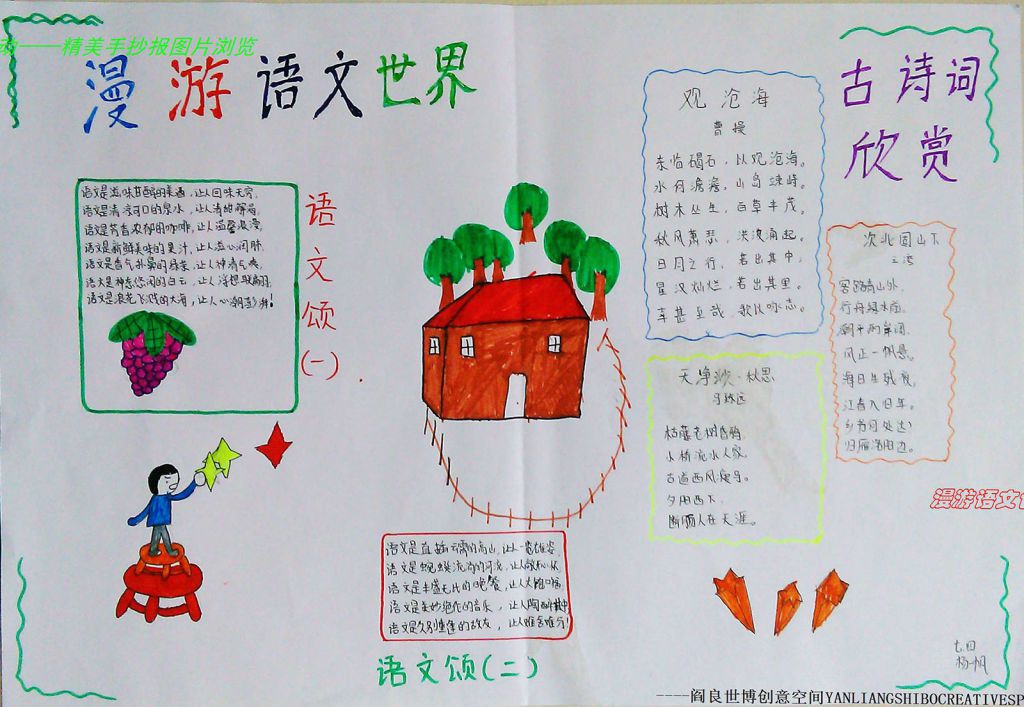 动——精美手抄报图片浏览
漫游语文世界
语文是滋味甘醇的美酒,让人回味无穷,
语文是清凉可口的泉水,让人清甜解渴,
语文是芳香浓郁的咖啡,让人温馨浪漫,
语文是新鲜美味的果汁,让人沁心润肺,
语文是香气扑鼻的绿茶,让人神清气爽,
语文是神态悠闲的白云,让人浮想联翩,
语文是浪花飞溅的大海,让人心潮澎湃!
语文颂(一)
语文是直插云霄的高山,让人一览雄姿,
语文是蜿蜒流淌的河流,让人
语文是丰盛无比的晚餐,让人大饱口福,
语文是美妙绝伦的音乐,让人陶醉其中
语文是久别重逢的故友,让人难舍难分!
语文颂(二)
古诗词
欣赏
观沧海
曹操
东临碣石,以观沧海。
水何澹澹,山岛竦峙。
树木丛生,百草丰茂。
秋风萧瑟,洪波涌起。
日月之行,若出其中,
星汉灿烂,若出其里。
幸甚至哉,歌以咏志。
次北固山下
王湾
客路青山外,
行舟绿水前。
潮平两岸阔,
风正一帆悬。
海日生残夜,
江春入旧年。
乡书何处达?
归雁洛阳边。
天净沙·秋思
马致远
枯藤老树昏鸦,
小桥流水人家,
古道西风瘦马。
夕阳西下,
断肠人在天涯。
漫游语文
七四
杨帆
----阎良世博创意空间YANLIANGSHIBOCREATIVESP